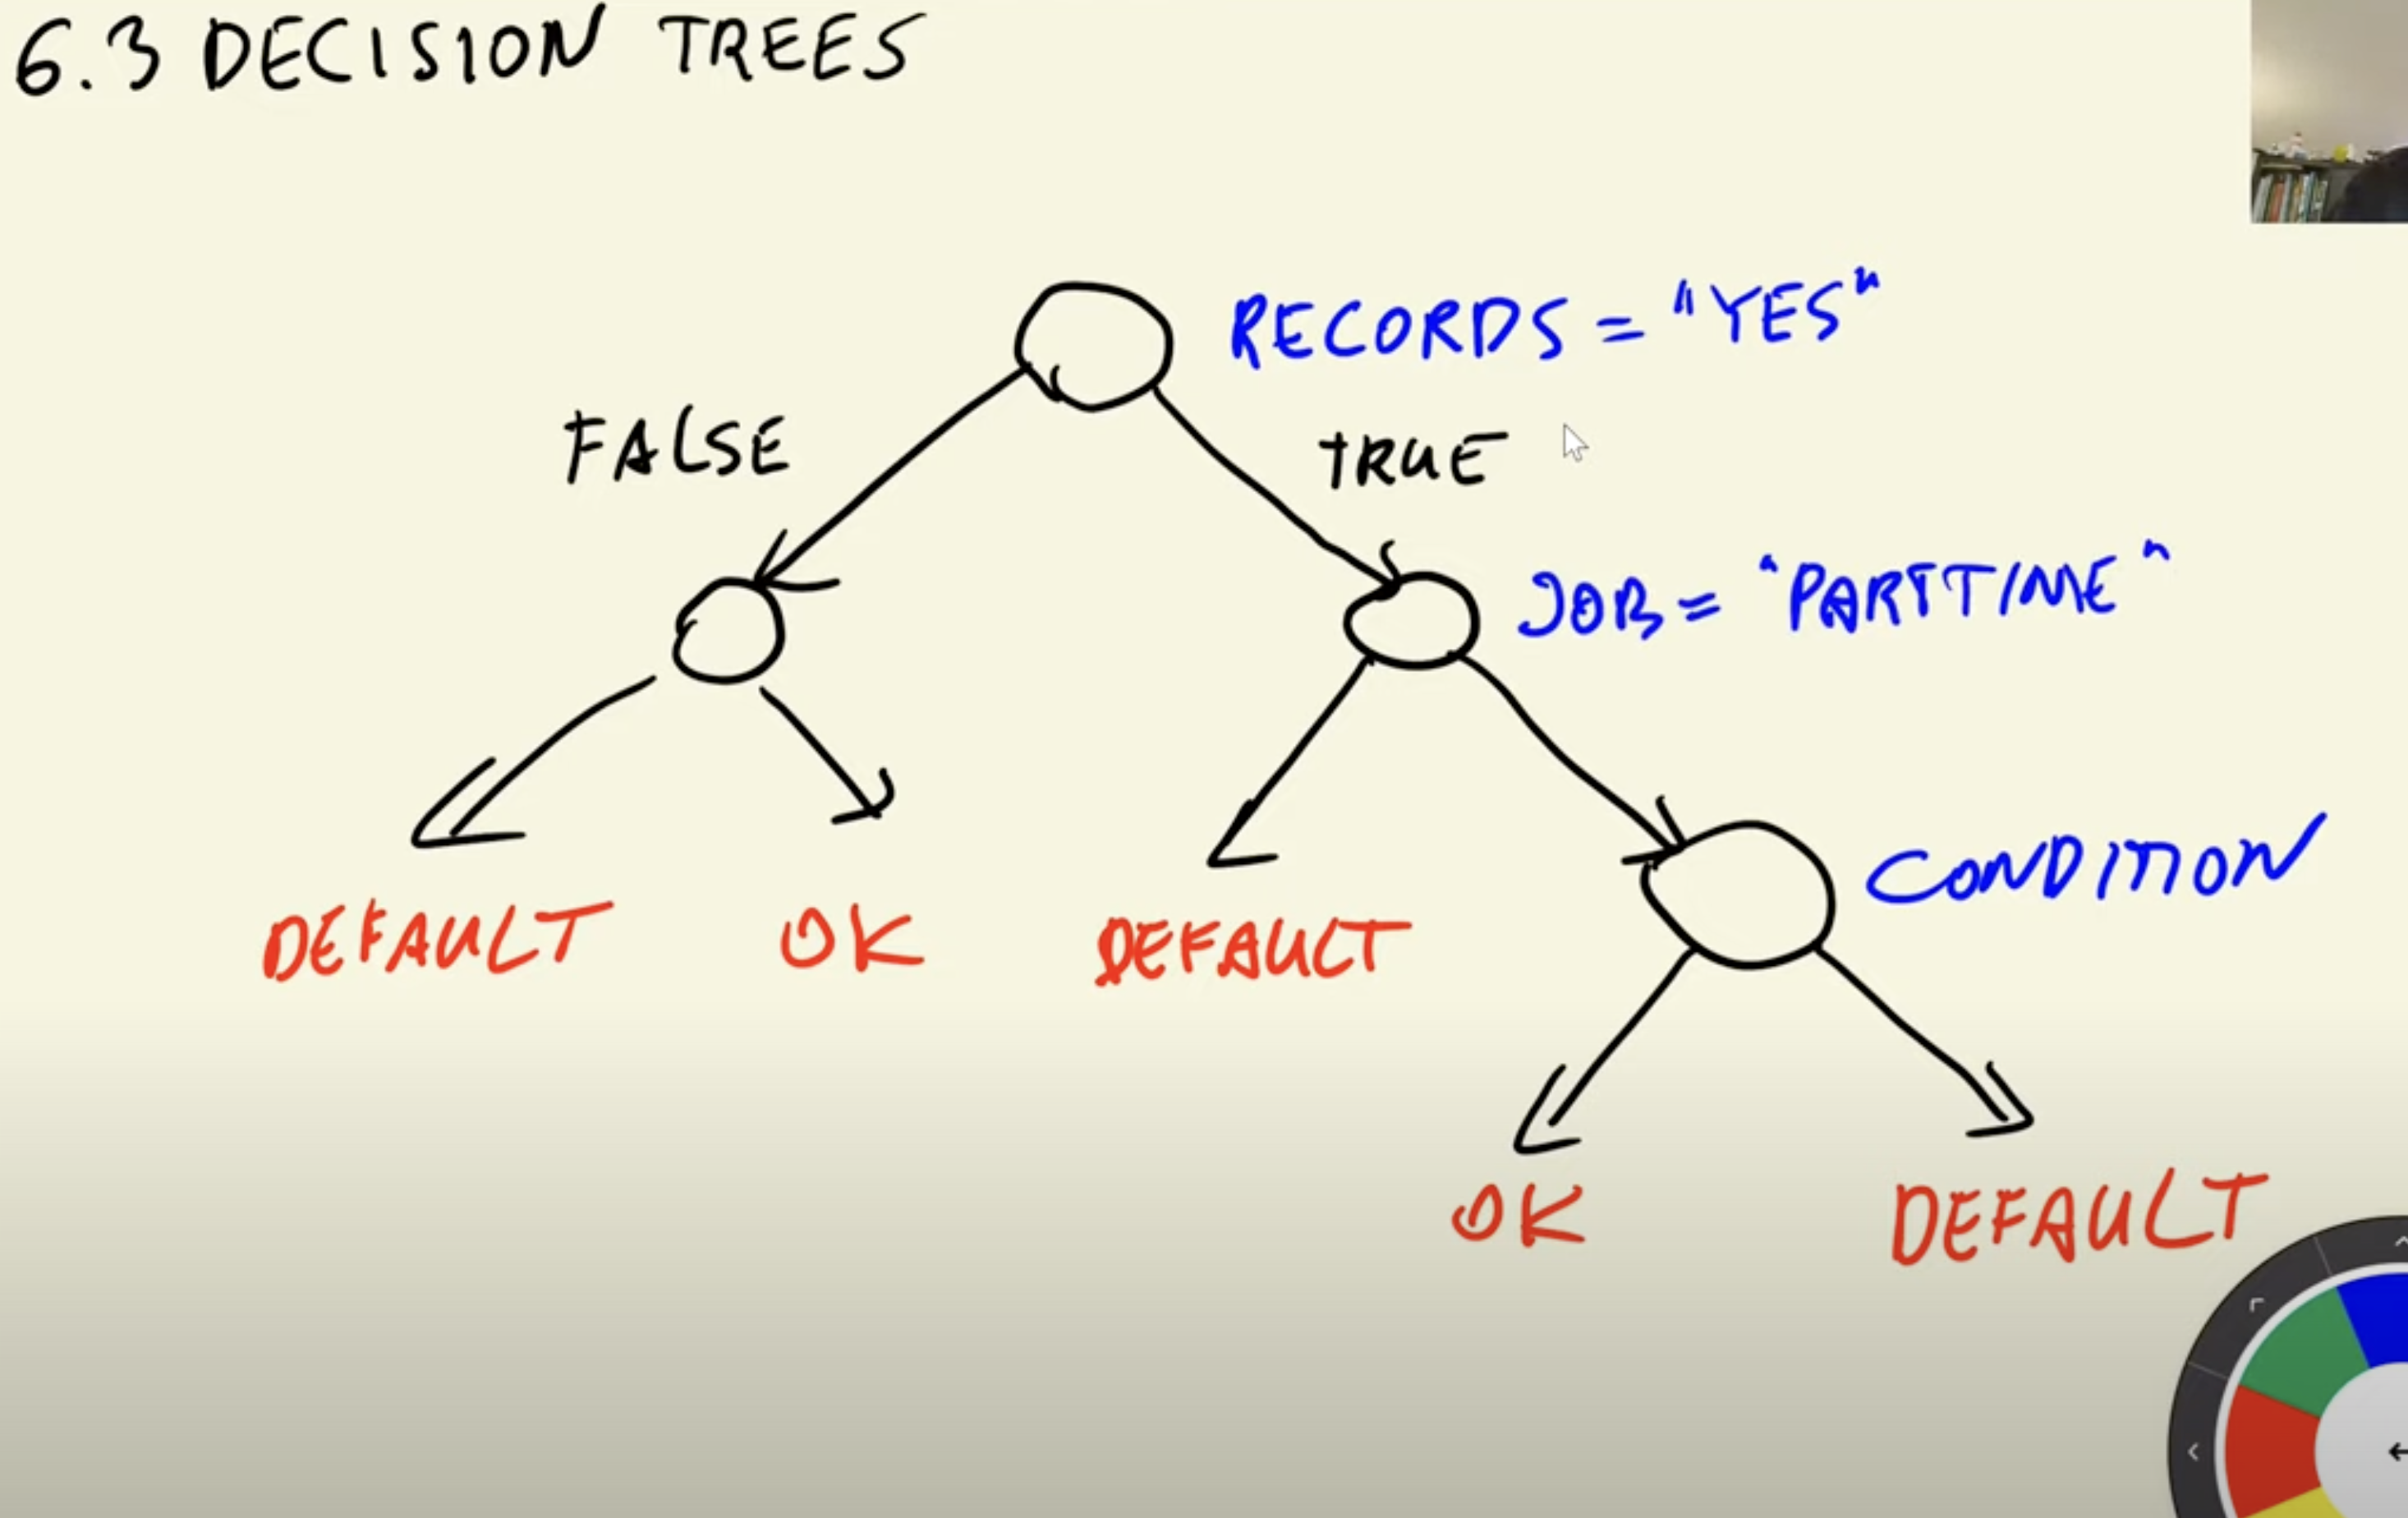 6.3 DECISION TREES
RECORDS = "YES"
FALSE
TRUE
JOB = "PARTTIME"
CONDITION
DEFAULT
OK
DEFAULT
OK
DEFAULT